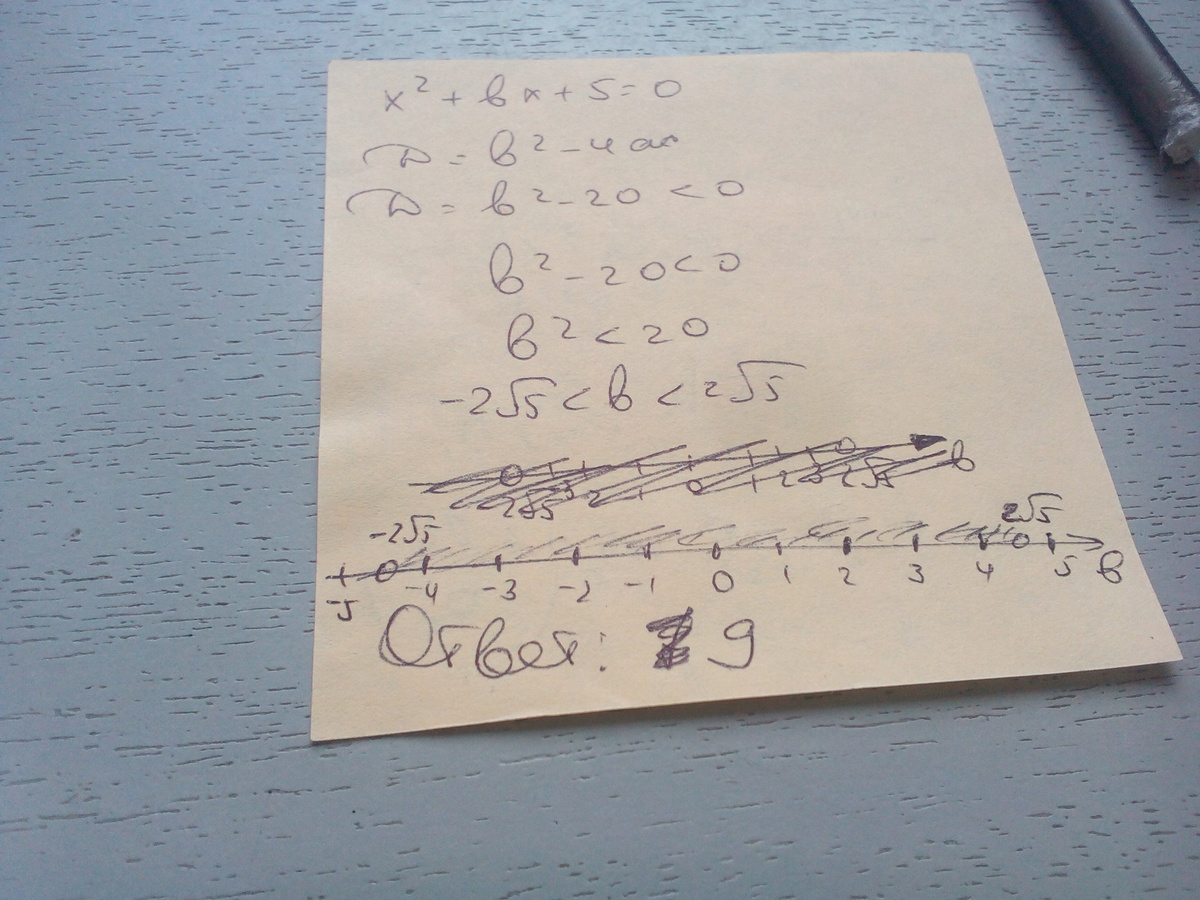 x² + bx + 5 = 0
D = b² - 4ac
D = b² - 20 < 0
b² - 20 < 0
b² < 20
-2√5 < b < 2√5
-2√5 2√5
-5 -4 -3 -2 -1 0 1 2 3 4 5 b
Ответ: 9